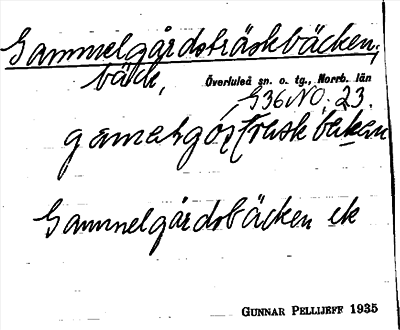 Gammelgårdsträskbäcken,
bäck,
Överluleå sn. o. tg., Norrb. län
G36NO, 23.
Gammelgårdsbäcken ek
GUNNAR PELLIJEFF 1935